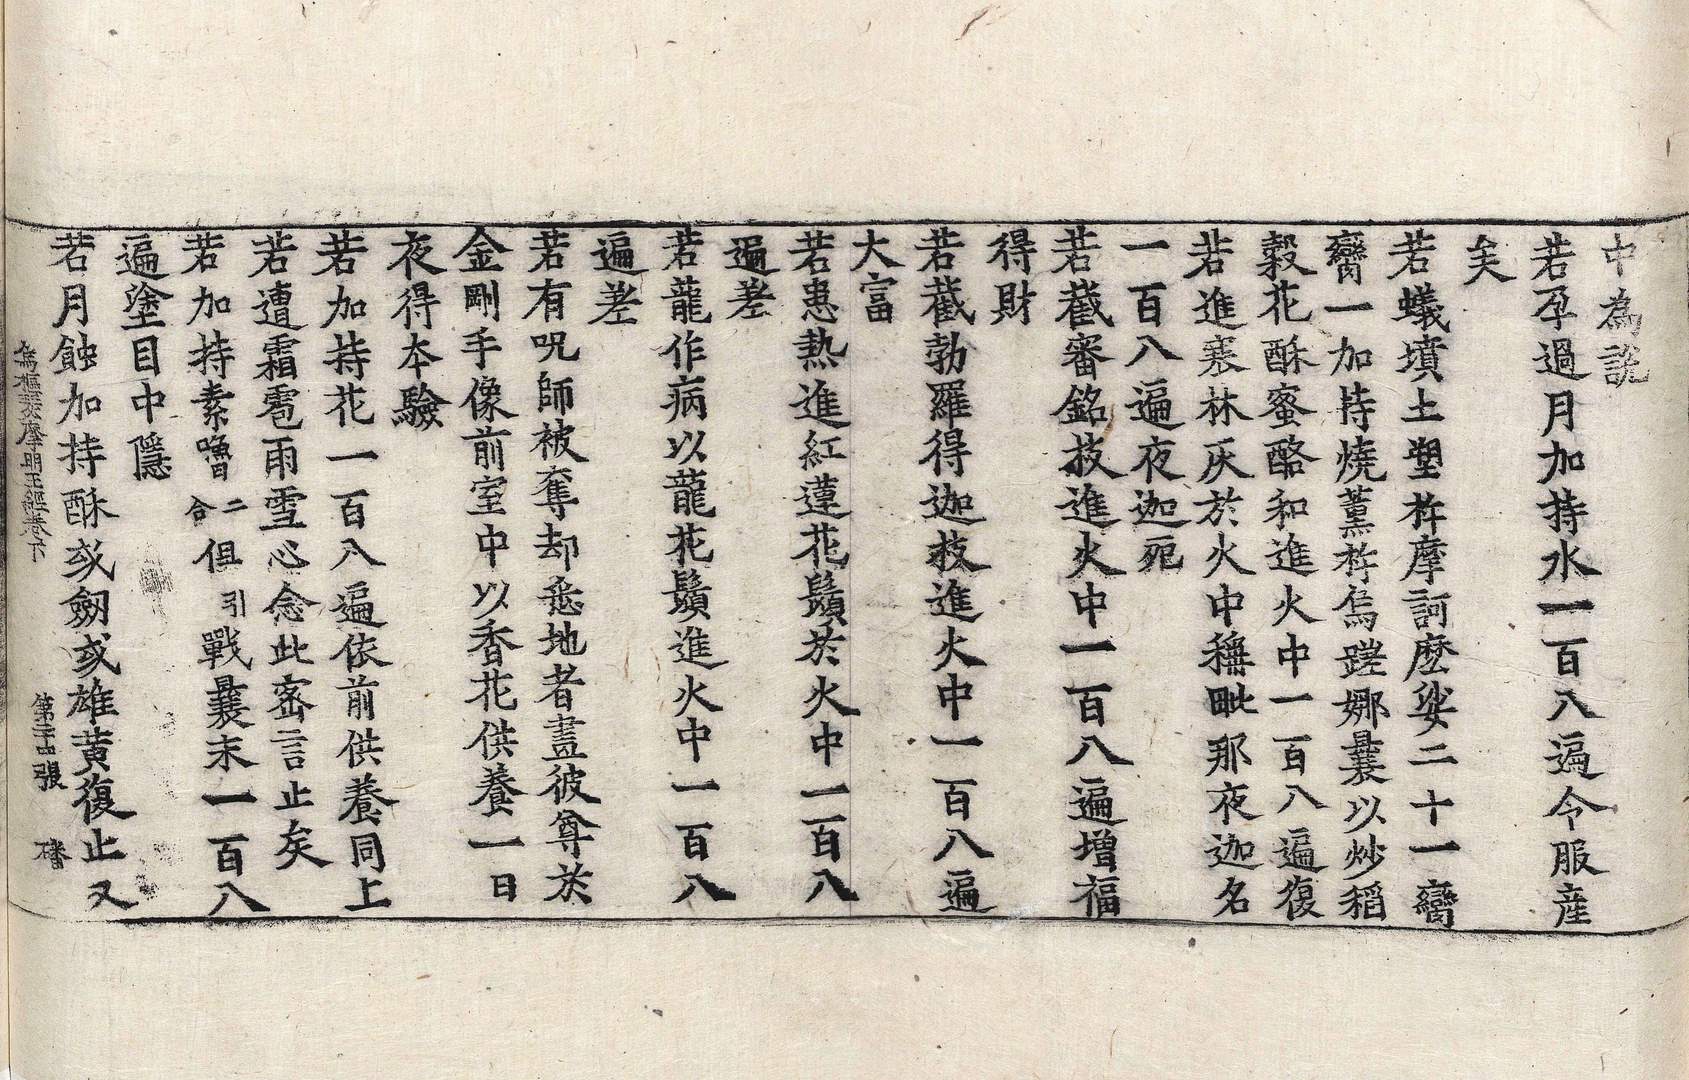 中為說
若孕過月加持水一百八遍令服産
矣
若蟻墳土塑杵摩訶麽娑二十一臠
臠一加持燒薰杵傿蹉娜曩以炒稻
糓花酥蜜酪和進火中一百八遍復
若進寒林灰於火中穪毗那夜迦名
一百八遍夜迦死
若截審銘技進火中一百八遍增福
得財
若截勃羅得迦技進火中一百八遍
大富
若患熱進紅蓮花鬚於火中一百八
遍差
若龍作病以龍花鬚進火中一百八
遍差
若有呪師被奪却悉地者畫彼尊於
金剛手像前室中以香花供養一日
夜得本驗
若加持花一百八遍依前供養同上
若遭霜雹雨雪心念此密言止矣
若加持素嚕二合但引戰曩末一百八
遍塗目中隱
若月蝕加持酥或劒或雄黄復止又
澁摩明王經卷下 第二十四張